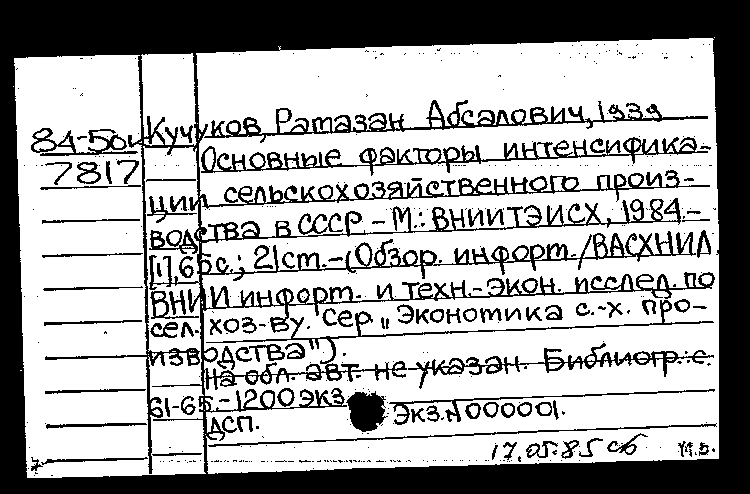 84-5оч Кучуков, Рамазан Абсалович, 1939
7817 Основные факторы интенсифика-
ции сельскохозяйственного произ-
водства в СССР. - М.: ВНИИТЭИСХ, 1984. -
[1], 65 с.; 21 см. - (Обзор. информ. / ВАСХНИЛ,
ВНИИ информ. и техн.-экон. исслед. по
сел. хоз-ву. Сер. „Экономика с.-х. про-
изводства").
На обл. авт. не указан. Библиогр.: с.
61-65. - 1200 экз.
ДСП. Экз. N 000001.
17.05.85 сб М.Б.